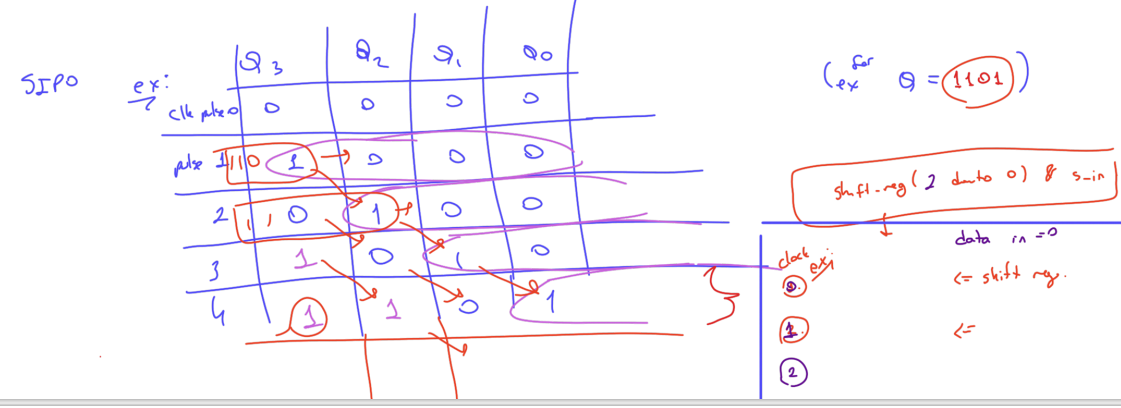 SIPO ex:
Q3 Q2 Q1 Q0
clk pulse 0 0 0 0 0
pulse 1 110 1 0 0 0
2 1,0 1 0 0
3 1 0 1 0
4 1 1 0 1
(ex for Q = 1101)
shift-reg(2 downto 0) & s-in
data in = 0
clock ex:
0. <= shift reg.
1. <=
2